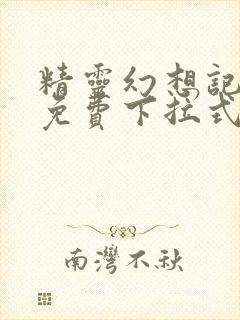 精靈幻想記
免費下拉式
南灣不秋